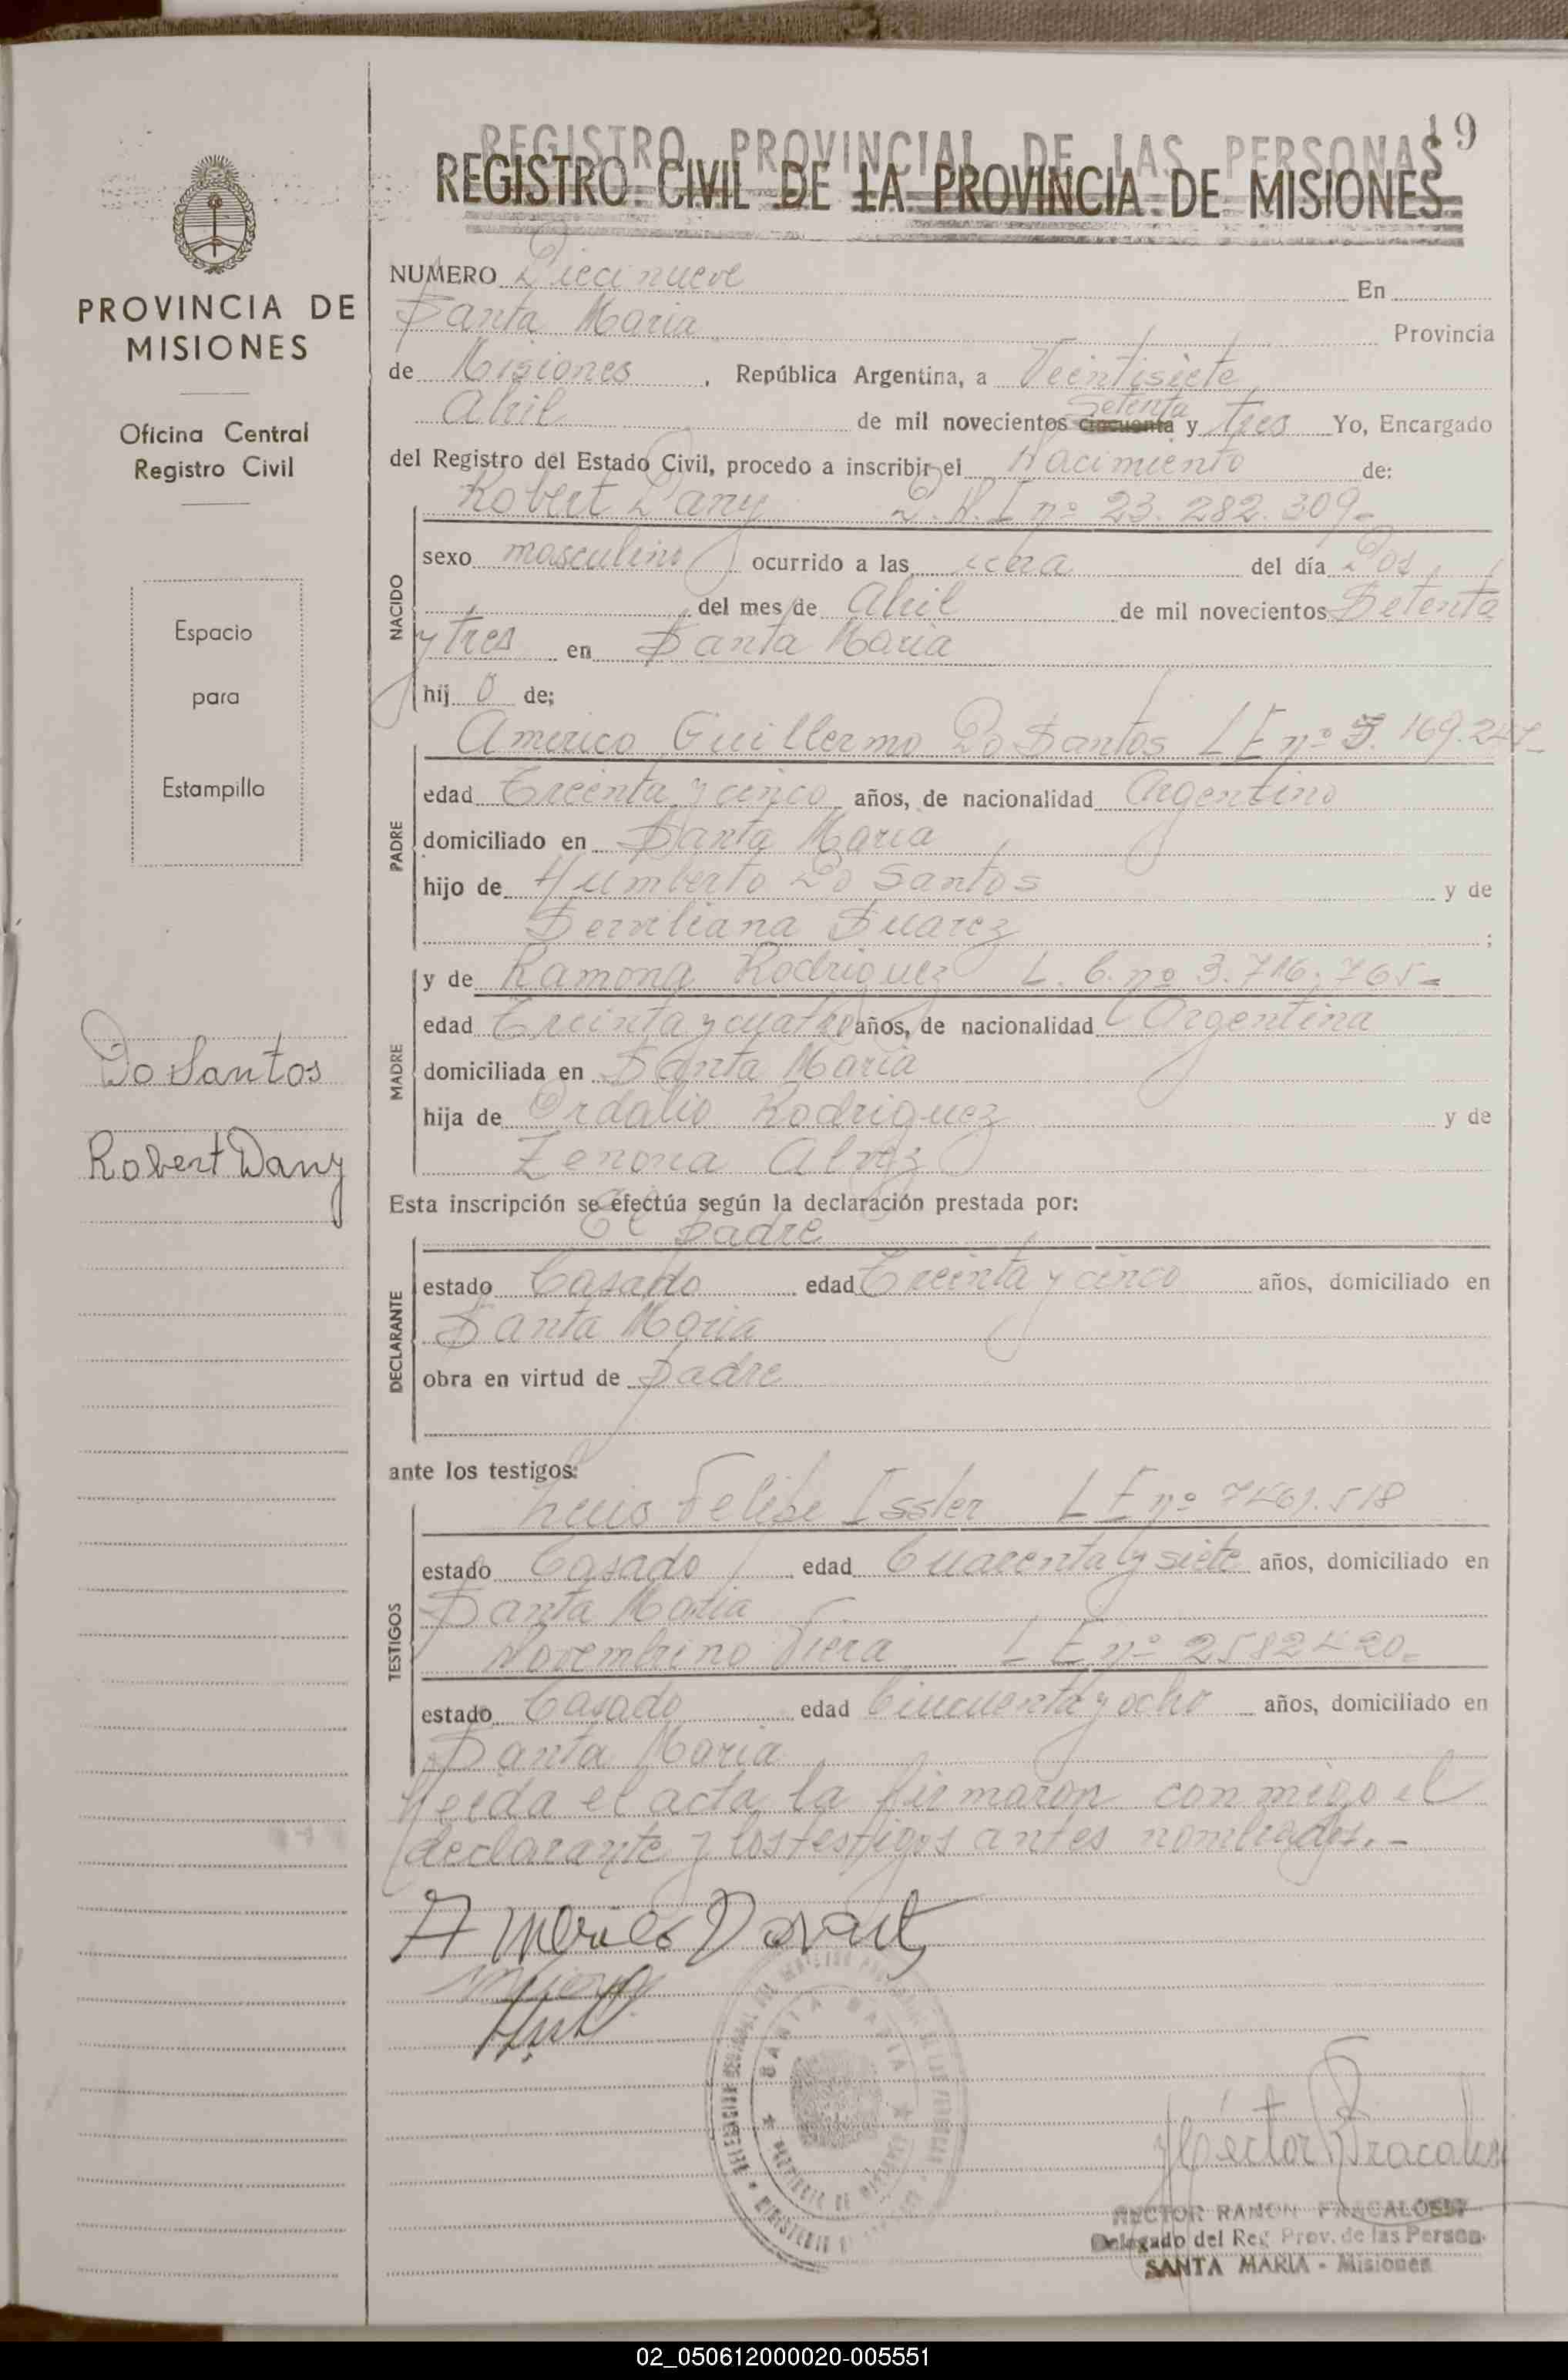 19
REGISTRO PROVINCIAL DE LAS PERSONAS
REGISTRO CIVIL DE LA PROVINCIA DE MISIONES
PROVINCIA DE
MISIONES
Oficina Central
Registro Civil
Espacio
para
Estampilla
Do Santos
Robert Dany
NUMERO Dieci nueve En
Santa Maria Provincia
de Misiones, República Argentina, a Veintisiete
Abril de mil novecientos cincuenta Setenta y tres Yo, Encargado
del Registro del Estado Civil, procedo a inscribir el Nacimiento de:
Robert Dany D.N.I nº 23.282.309-
NACIDO
sexo masculino ocurrido a las del día Dos
del mes de Abril de mil novecientos Setenta
y tres en Santa Maria
hij o de;
PADRE
Americo Guillermo Do Santos L E nº 169.
edad Treinta y cinco años, de nacionalidad Argentino
domiciliado en Santa Maria
hijo de Humberto Do Santos y de
Serviliana Suarez ;
MADRE
y de Ramona Rodriguez L. C. nº 3.716.765-
edad Treinta y cuatro años, de nacionalidad Argentina
domiciliada en Santa Maria
hija de Ordalio Rodriguez y de
Zenona Alvez
Esta inscripción se efectúa según la declaración prestada por:
El padre
DECLARANTE
estado Casado edad Treinta y cinco años, domiciliado en
Santa Maria
obra en virtud de padre
ante los testigos:
TESTIGOS
Luis Felipe Issler L E nº 7461.518
estado Casado edad Cuarenta y siete años, domiciliado en
Santa Maria
Novembrino Viera L E nº 2582420-
estado Casado edad Cincuenta y ocho años, domiciliado en
Santa Maria
Leida el acta la firmaron con migo el
declarante y los testigos antes nombrados.-
SANTA MARIA
HECTOR RAMON FRACALOSSI
Delegado del Reg Prov. de las Person.
SANTA MARIA - Misiones
02_050612000020-005551